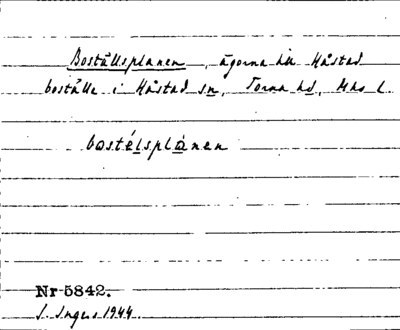 Boställsplanen, ägorna till Håstad
boställe i Håstad sn, Torna hd, Mhs l.
bostélsplånen
Nr 5842.
S. Ingers 1944.